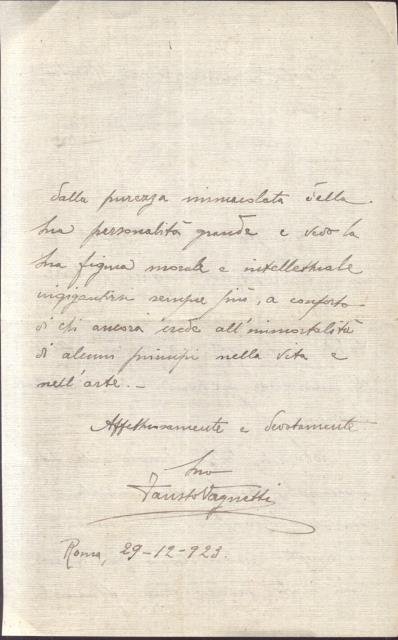 dalla purezza immacolata della
Sua personalità grande e vedo la
Sua figura morale e intellettuale
ingigantirsi sempre più, a conforto
di chi ancora crede all'immortalità
di alcuni principi nella vita e
nell'arte. –
Affettuosamente e devotamente
Suo
Fausto Vagnetti
Roma, 29-12-923.